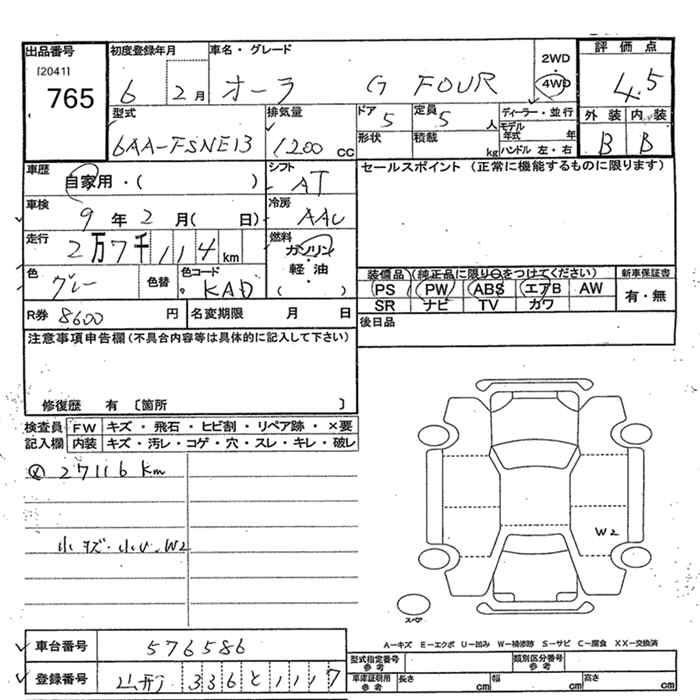 出品番号
[2041]
765
初度登録年月
6 2月
車名・グレード
オーラ G FOUR
2WD
4WD
評価点
4.5
外装 内装
B B
型式
6AA-FSNE13
排気量
1200 CC
ドア
5
定員
5人
形状
積載
kg
ディーラー・並行
モデル年式 年
ハンドル 左・右
車歴
自家用・( )
シフト
AT
セールスポイント (正常に機能するものに限ります)
車検
9年2月( 日)
冷房
AAC
走行
2万7千114km
燃料
ガソリン
・
軽油
( )
色
グレー
色替
色コード
KAD
装備品 (純正品に限り○をつけてください)
新車保証書
PS PW ABS エアB AW
有・無
SR ナビ TV カワ
R券 8600 円
名変期限 月 日
後日品
注意事項申告欄 (不具合内容等は具体的に記入して下さい)
修復歴 有 〔箇所 〕
検査員記入欄
FW キズ・飛石・ヒビ割・リペア跡・×要
内装 キズ・汚レ・コゲ・穴・スレ・キレ・破レ
27116 Km
小キズ・小凹、W2
W2
スペア
車台番号
576586
登録番号
336 と 1117
A-キズ E-エクボ U-凹み W-補修跡 S-サビ C-腐食 XX-交換済
型式指定番号 参考
類別区分番号 参考
車庫証明用 参考
長さ cm
幅 cm
高さ cm